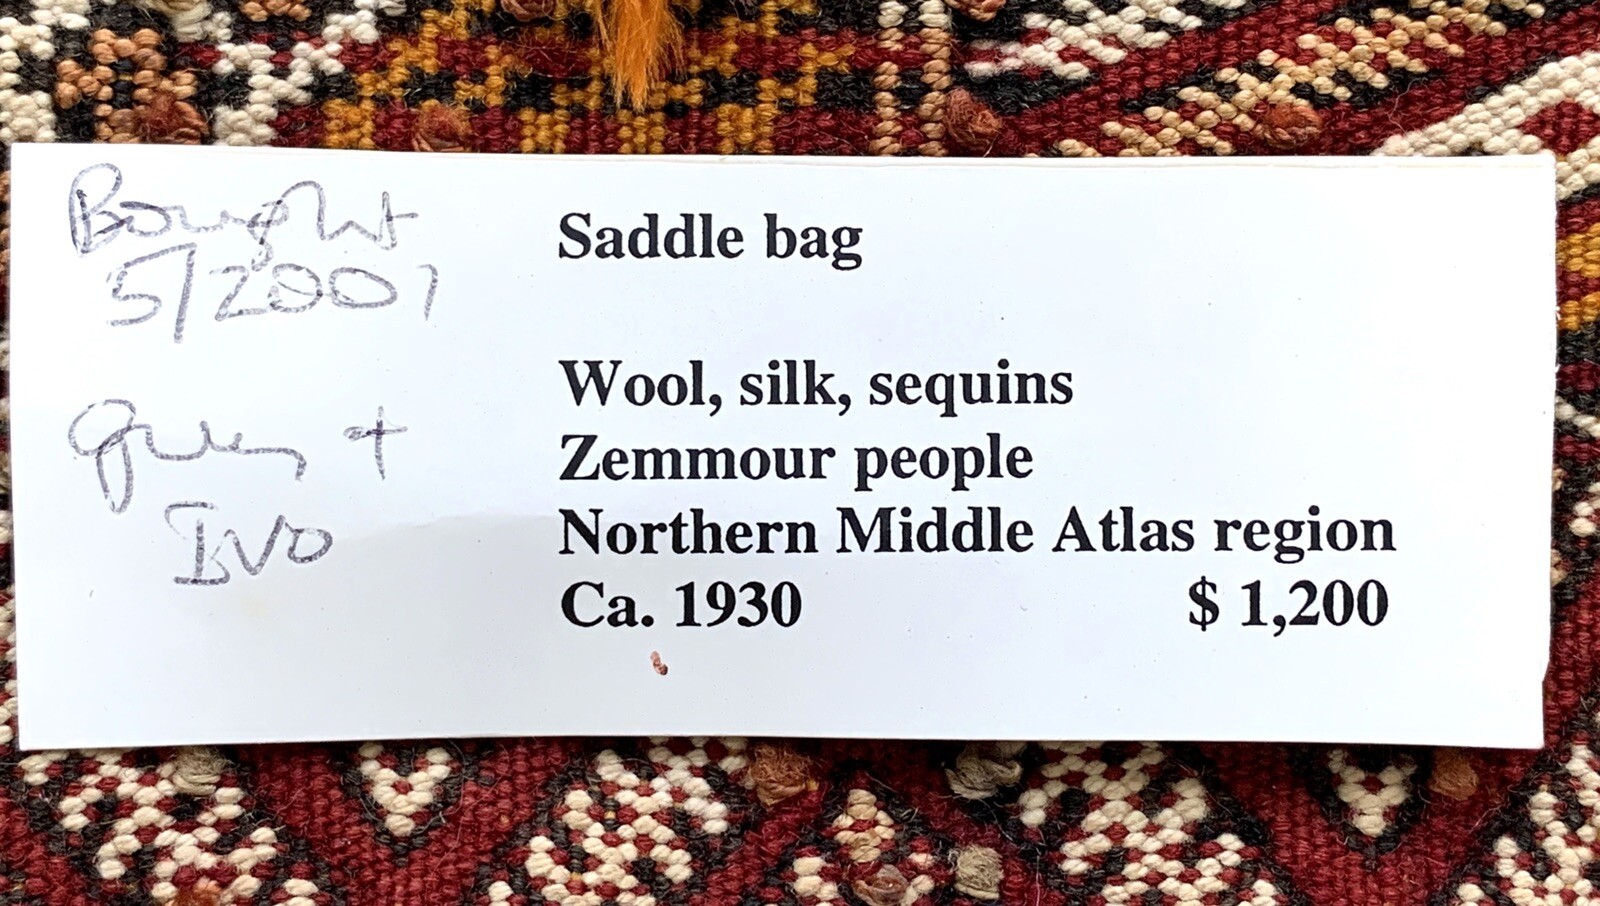 Bought
5/2007
+
IVO
Saddle bag
Wool, silk, sequins
Zemmour people
Northern Middle Atlas region
Ca. 1930 $ 1,200